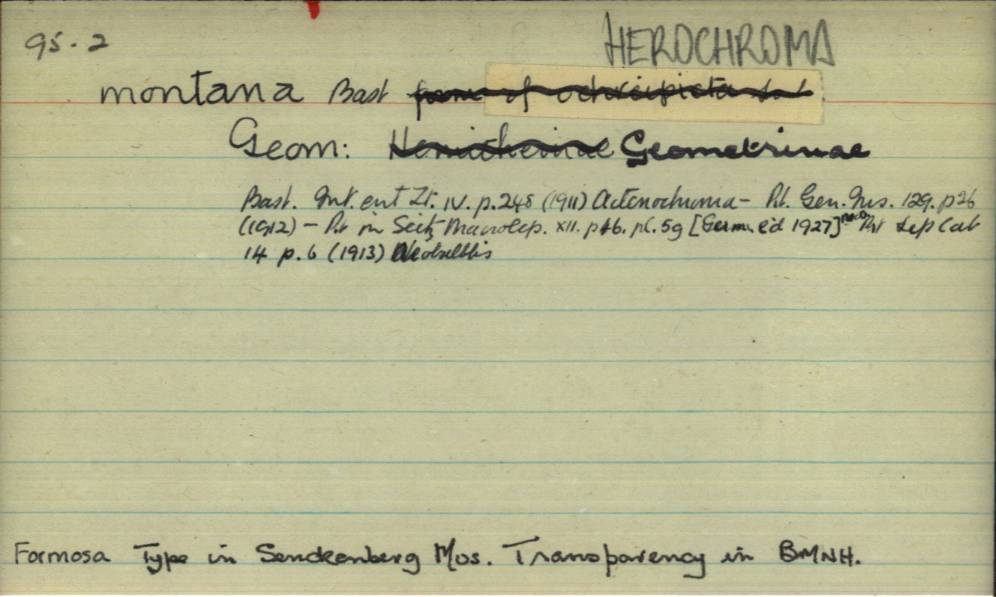 95.2 HEROCHROMA
montana Bast form of ochreipicta
Geom: Hemitheinae Geometrinae
Bast. Int. ent Zt. IV. p.248 (1911) Actenochroma – Pt. Gen. Ins. 129. p26
(1912) – Pt in Seitz Macrolep. XII. p. pl. 5g [Germ. ed 1927] Pt Lep Cat
14 p. 6 (1913)
Formosa Type in Senckenberg Mus. Transparency in BMNH.